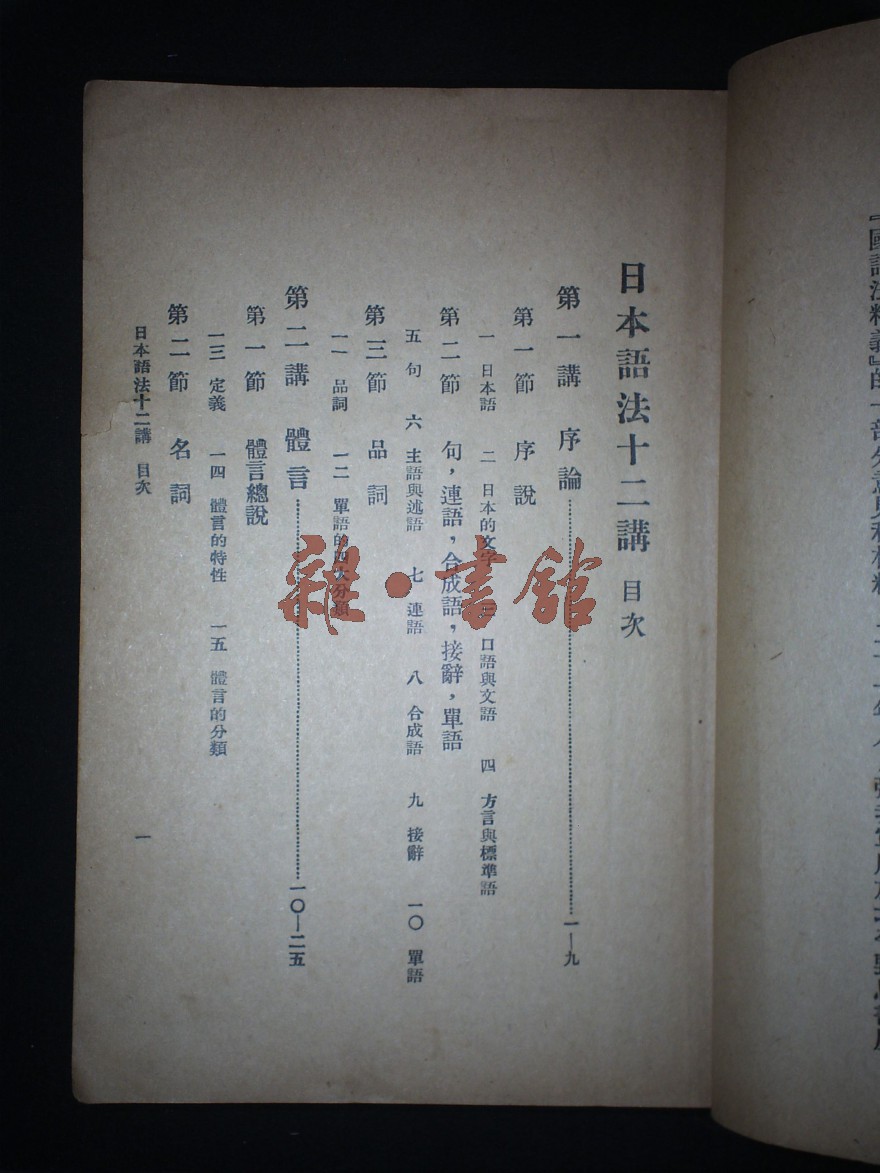 日本語法十二講 目次
第一講 序論……一—九
第一節 序説
一 日本語 二 日本的文字 三 口語與文語 四 方言與標準語
第二節 句，連語，合成語，接辭，單語
五 句 六 主語與述語 七 連語 八 合成語 九 接辭 一〇 單語
第三節 品詞
一一 品詞 一二 單語的四大分類
第二講 體言……一〇—二五
第一節 體言總說
一三 定義 一四 體言的特性 一五 體言的分類
第二節 名詞
日本語法十二講 目次 一
雜·書館